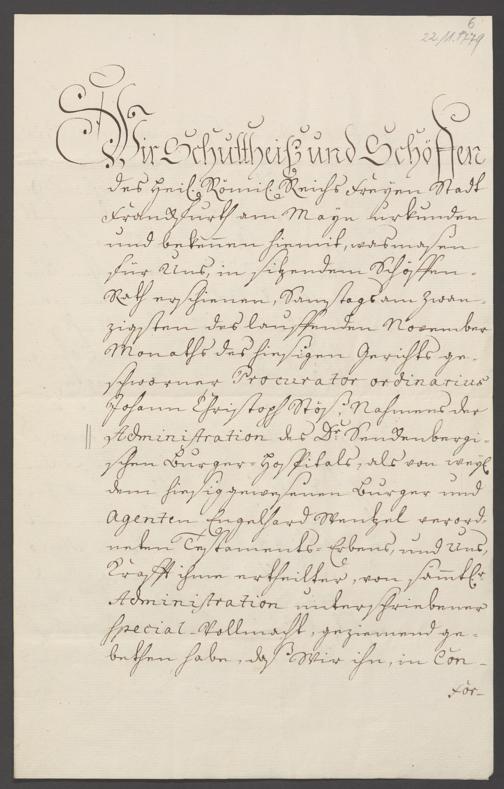 6
22/11.1779
Wir Schultheiß und Schöffen
des Heil. Römis. Reichs Freyen Stadt
Franckfurth am Mayn urkunden
und bekennen hiemit, wasmasen
für Uns, in sitzendem Schöffen-
Rath erschienen, Samstags am zwan-
zigsten des lauffenden November
Monaths des hiesigen Gerichts ge-
schworner Procurator ordinarius
Johann Christoph Stös, Nahmens der
Administration des Dr. Senckenbergi-
schen Burger-Hospitals, als von weyl.
dem hiesig gewesenen Burger und
Agenten Engelhard Wentzel verord-
neten Testaments-Erbens, und Uns,
Krafft ihme ertheilter, von sämtl.
Administration unterschriebener
special-Vollmacht, geziemend ge-
bethen habe, daß Wir ihn, in Con-
for-